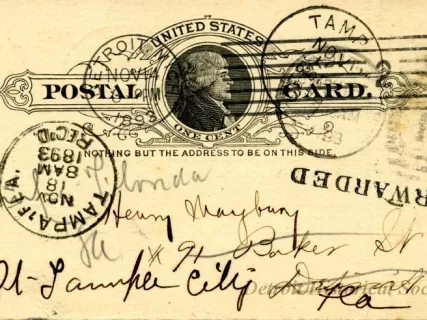 UNITED STATES
POSTAL CARD.
ONE CENT
NOTHING BUT THE ADDRESS TO BE ON THIS SIDE.
DETROIT
NOV 14
1893
TAMP
NOV 1
TAMPA, FLA.
NOV
18
8 AM
1893
REC'D
RWARDED
Florida
Henry Maybury
91 Parker St
Tampa City Detroit
Fla
Detroit Historical Soc